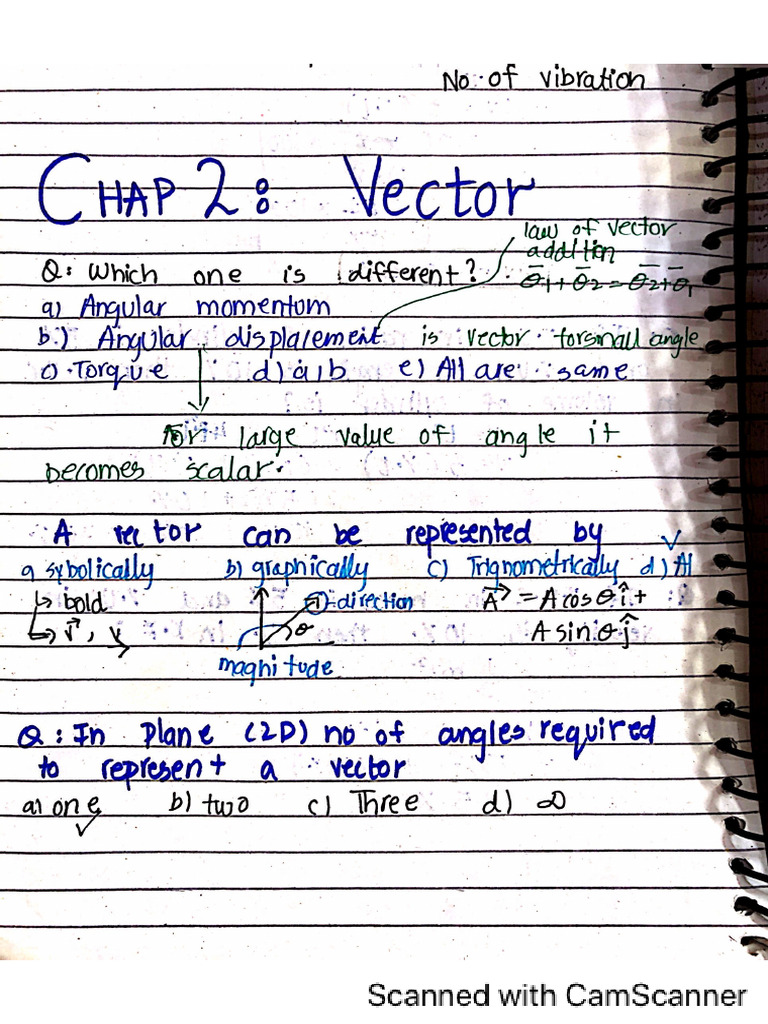 No. of vibration
CHAP 2: Vector
law of vector
addition
θ̄1 + θ̄2 = θ̄2 + θ̄1
Q: Which one is different?
a) Angular momentum
b.) Angular displacement is vector for small angle
c) Torque d) a,b e) All are same
For large value of angle it
becomes scalar.
A vector can be represented by
a sybolically b) graphically c) Trignometrically d) All
bold direction A⃗ = A cos θ î +
r⃗, v θ A sin θ ĵ
maghitude
Q: In plane (2D) no of angles required
to represent a vector
a) one b) two c) Three d) ∞
Scanned with CamScanner